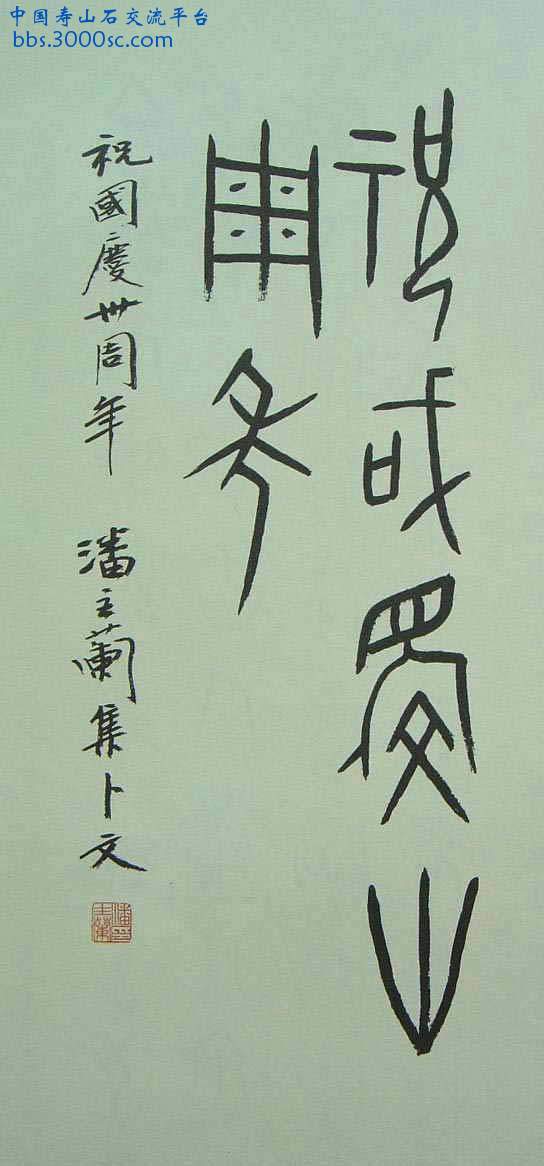 中国寿山石交流平台
bbs.3000sc.com
祝國慶卅
周年
祝國慶卅周年 潘主蘭集卜文